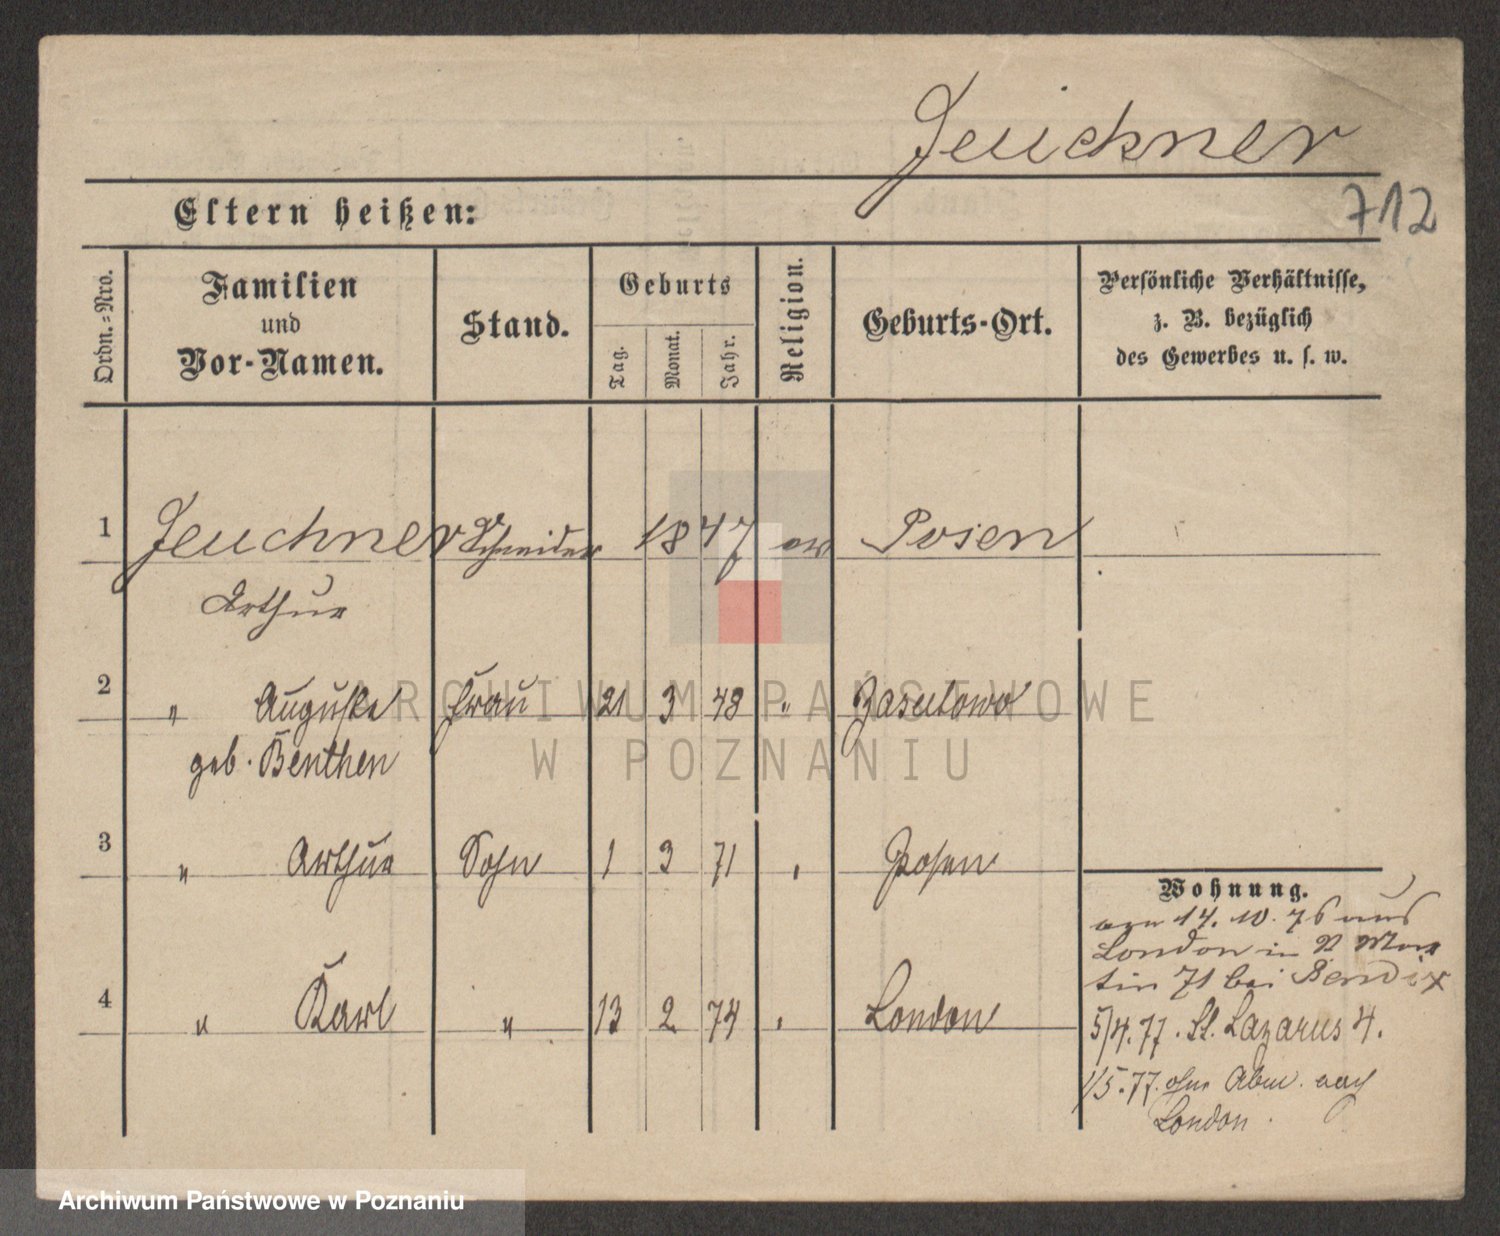 Jeuckner
712
Eltern heißen:
Ordn.=Nro.
Familien
und
Vor-Namen.
Stand.
Geburts
Tag.
Monat.
Jahr.
Religion.
Geburts-Ort.
Persönliche Verhältnisse,
z. B. bezüglich
des Gewerbes u. s. w.
1 Jeuchner Schneider 1847 ev Posen
Arthur
2 " Auguste Frau 21 3 48 "
geb. Benthen
3 " Arthur Sohn 1 3 71 " Posen
4 " Karl " 13 2 74 " London
Wohnung.
14. 10. 76 aus
London in St Mar
tin 71 bei Bendix
5/4.77. St. Lazarus 4.
1/5.77. ohne Abm. nach
London.
ARCHIWUM PAŃSTWOWE
W POZNANIU
Archiwum Państwowe w Poznaniu